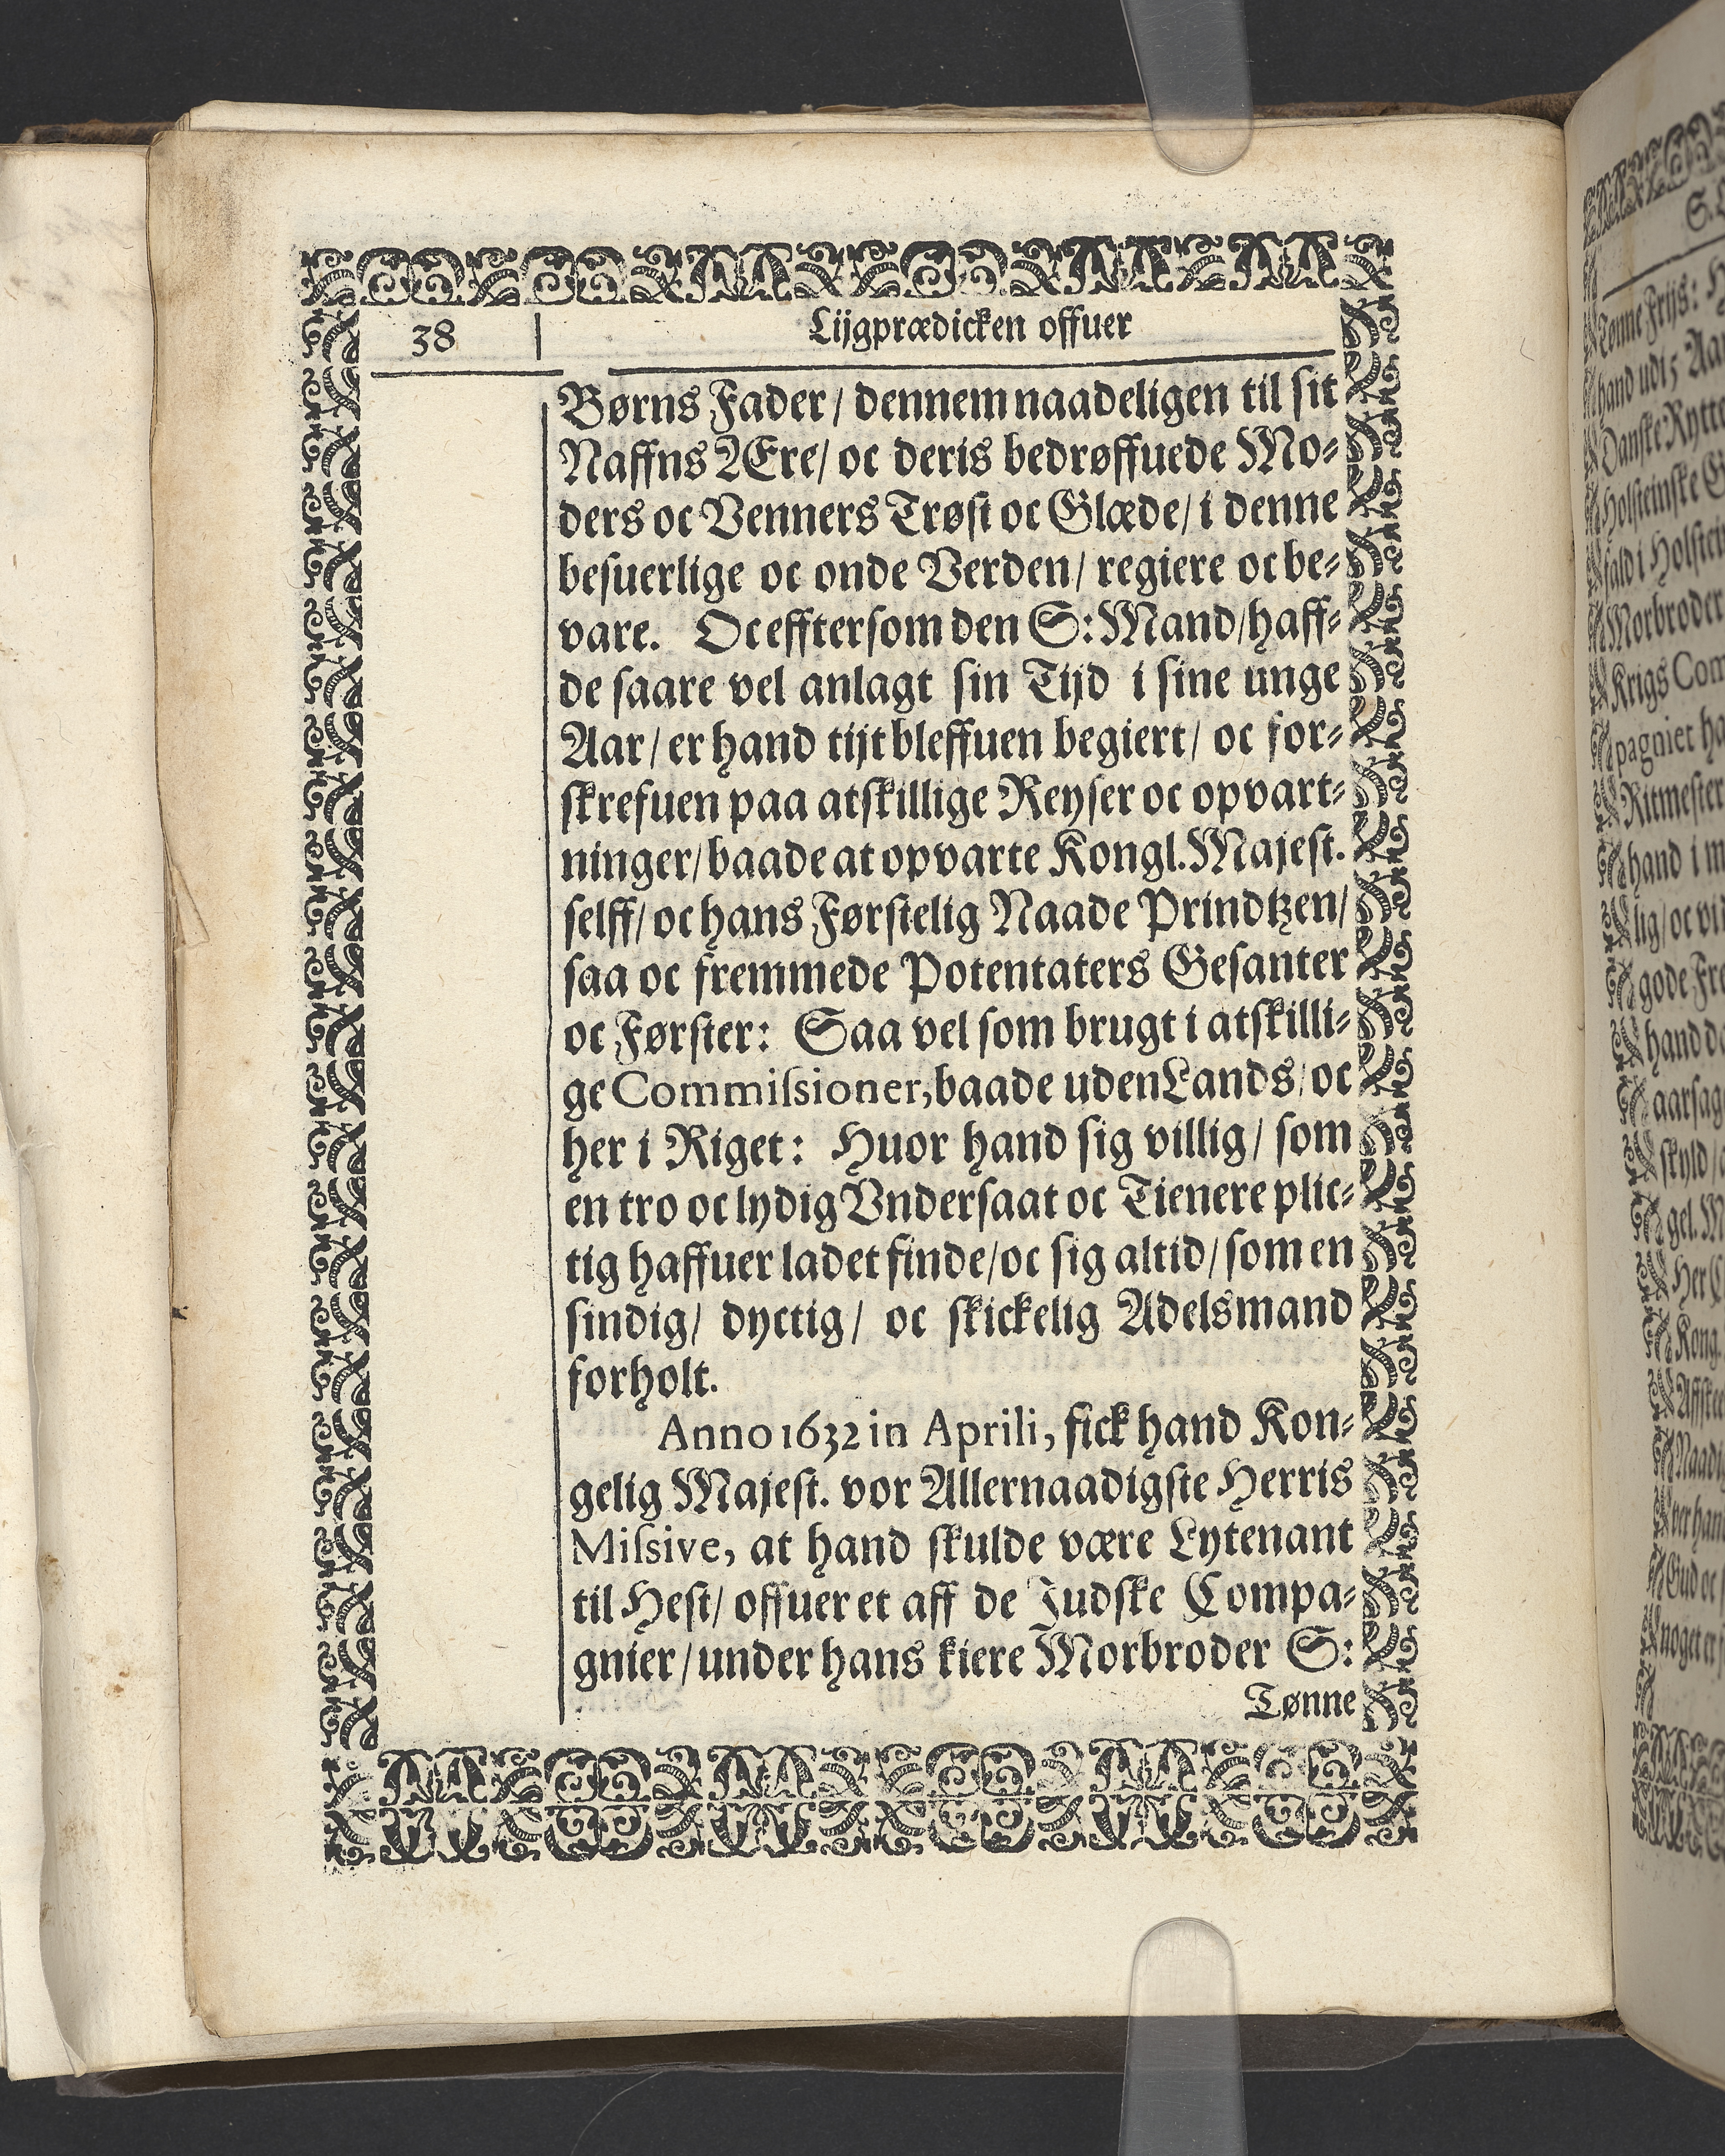 38
Lijgprædicken offuer
Børns Fader / dennem naadeligen til sit
Naffns Ære / oc deris bedrøffuede Mo-
ders oc Venners Trøst oc Glæde / i denne
besuerlige oc onde Verden / regiere oc be-
vare. Oc effter som den S: Mand / haff-
de saare vel anlagt sin Tijd i sine unge
Aar / er hand tijt bleffuen begiert / oc for-
skrefuen paa atskillige Reyser oc opvart-
ninger / baade at opvarte Kongl. Majest.
selff / oc hans Førstelig Naade Prindtzen /
saa oc fremmede Potentaters Gesanter
oc Førster: Saa vel som brugt i atskilli-
ge Commissioner, baade uden Lands / oc
her i Riget: Huor hand sig villig / som
en tro oc lydig Vndersaat oc Tienere plic-
tig haffuer ladet finde / oc sig altid / som en
sindig / dyctig / oc skickelig Adelsmand
forholt.
Anno 1632 in Aprili, fick hand Kon-
gelig Majest. vor Allernaadigste Herris
Missive, at hand skulde være Lytenant
til Hest / offuer et aff de Judske Compa-
gnier / under hans kiere Morbroder S:
Tønne
Tønne Frijs: H
hand udi 5 Aar
Danske Rytte
Holsteinske G
fald i Holstei
Morbroder
Krigs Com
pagniet ha
Ritmester
hand i m
lig / oc vil
gode Fre
hand da
aarsag
skyld /
gel. M
Her C
Kong.